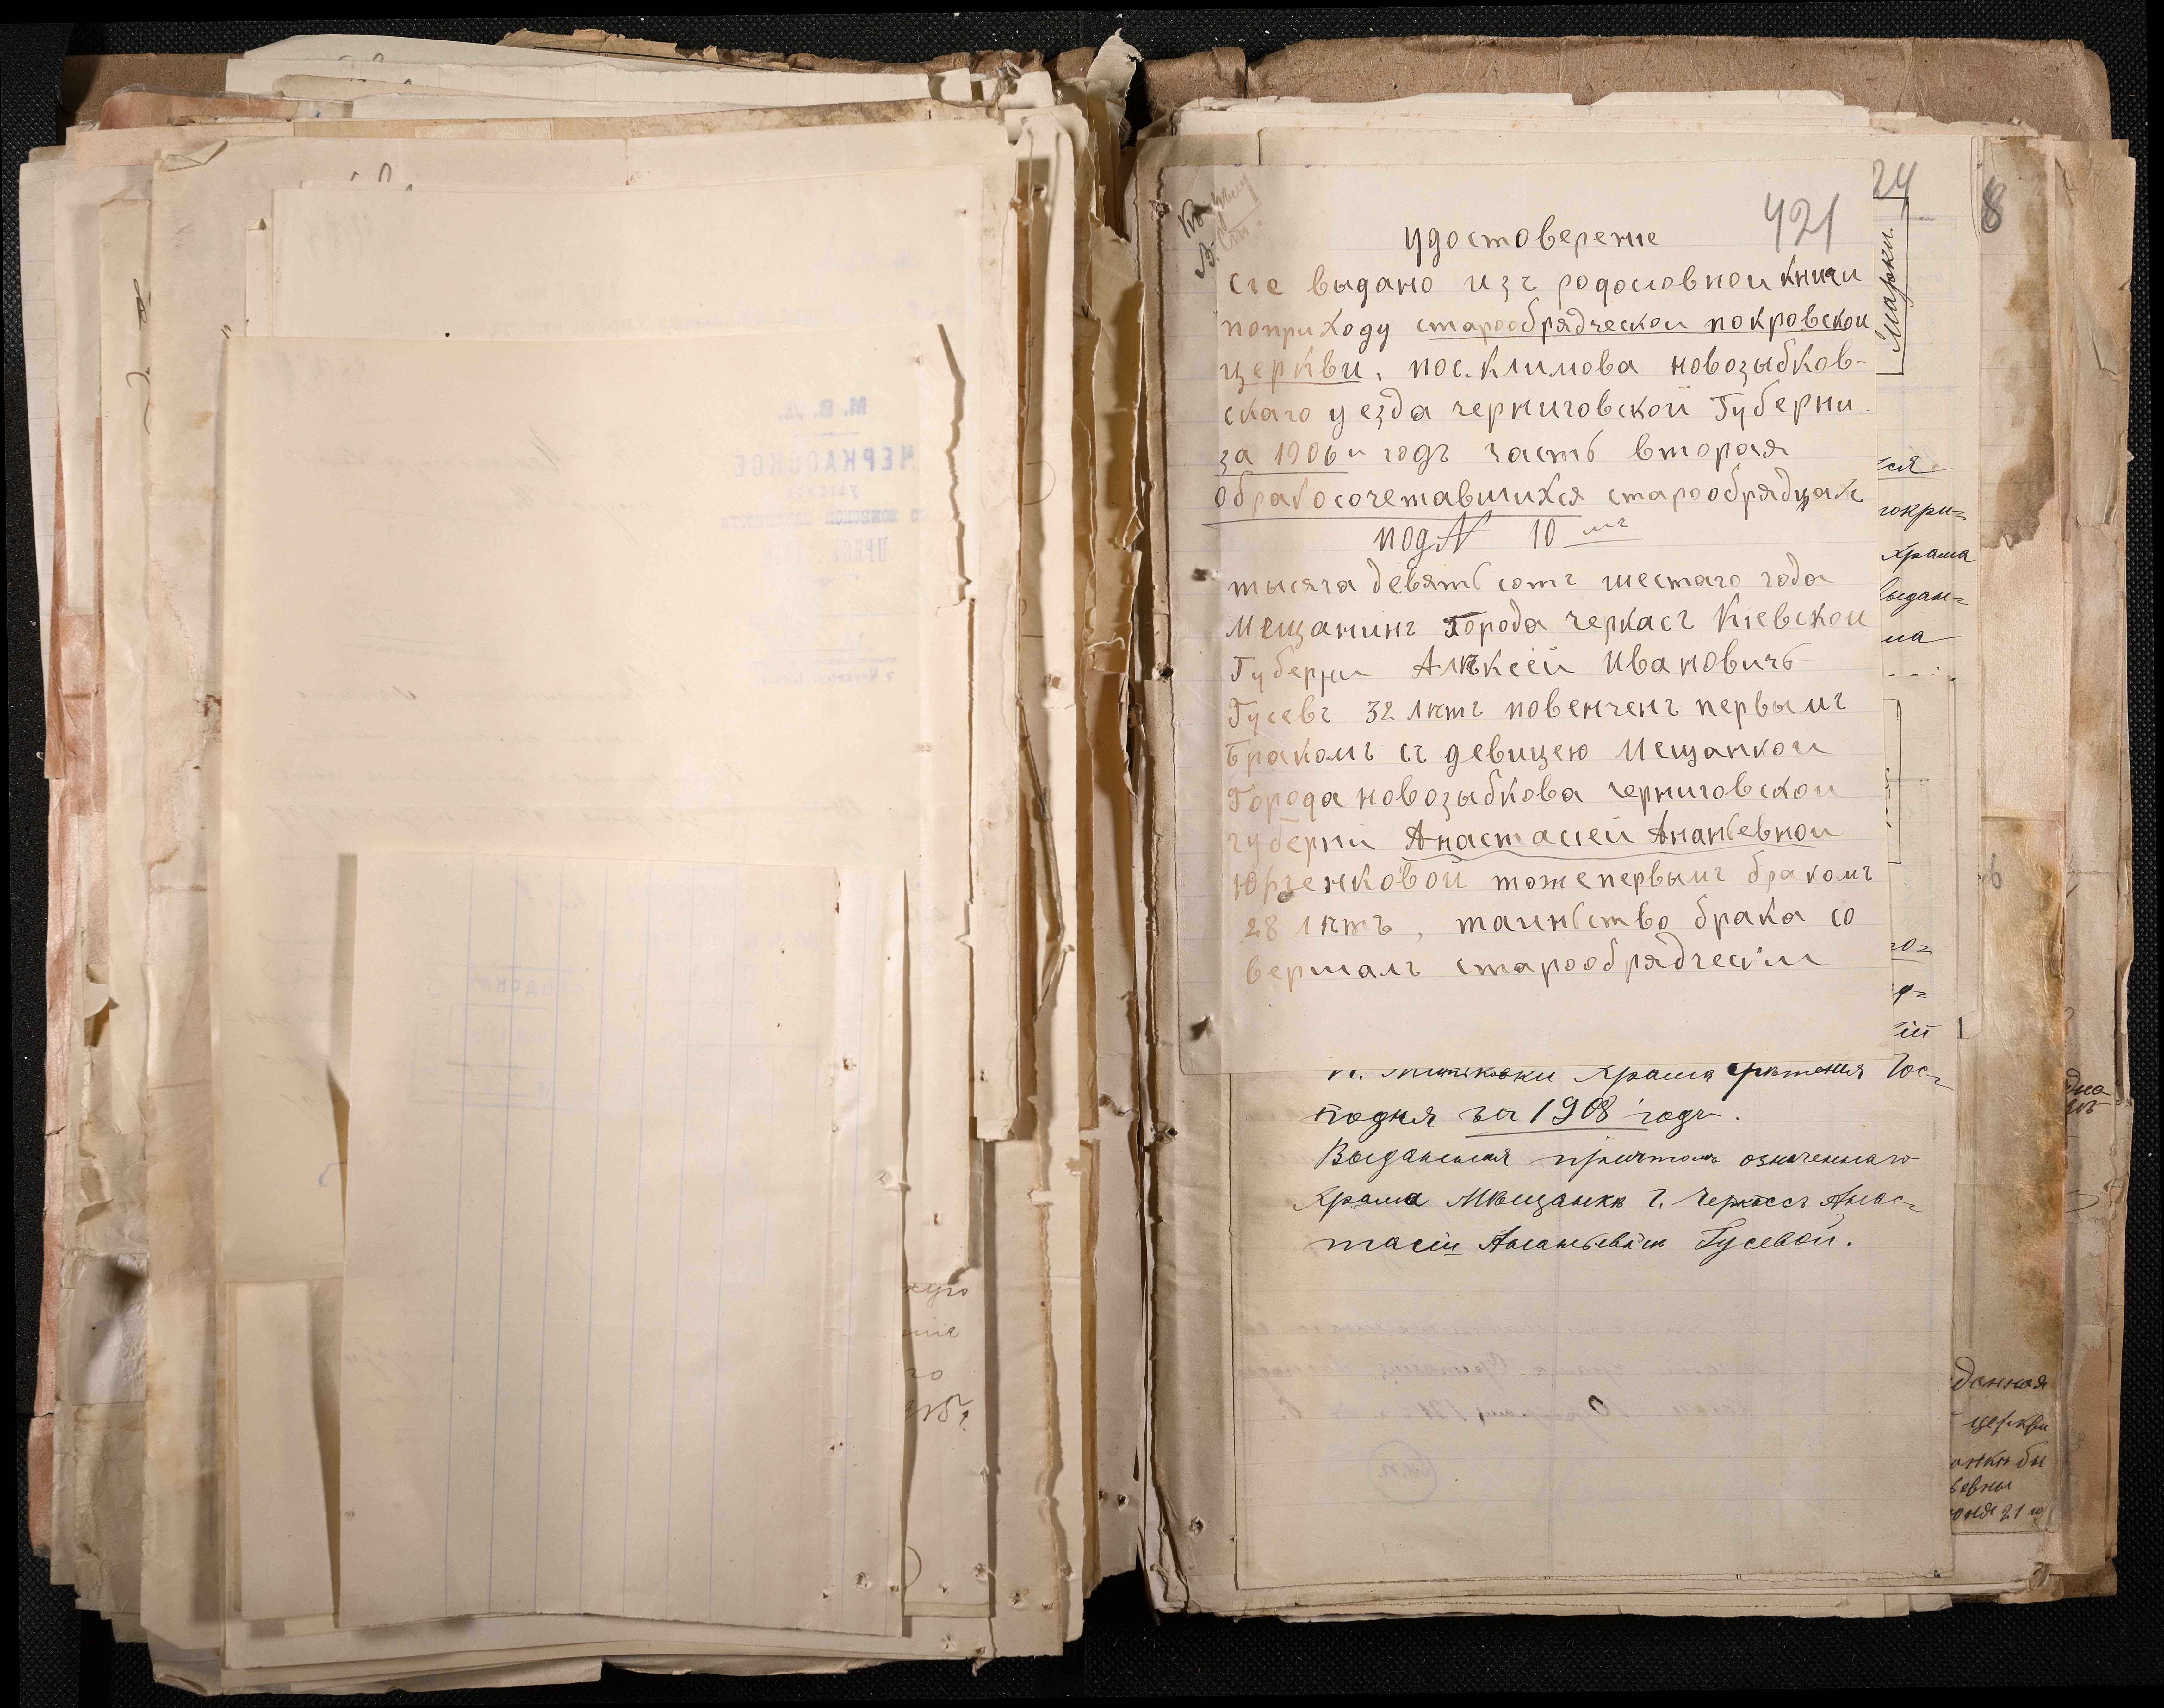 421
24
8
удостоверенiе
сiе выдано изъ родословной книги
поприходу старообрядческой покровской
церкви, пос. Климова новозыбков-
скаго уезда черниговской Губерни
за 1906й годъ часть вторая
обракосочетавшихся старообрядцахъ
под№ 10 мъ
тысяча девятьсотъ шестаго года
Мещанинъ Города черкасъ Кiевской
Губерни Алѣксѣй Ивановичь
Гусевъ 32 лѣтъ повенченъ первымъ
Бракомъ съ девицею Мещанкой
Города новозыбкова черниговской
губернiи Анастасiей Ананьевной
Юрченковой тоже первымъ бракомъ
28 лѣтъ, таинство брака со
вершалъ старообрядческiй
Марки.
ся
Храма
выдан=
на
го=
iй
Храма Срѣтенiя Гос=
подня за 1908 годъ.
Выданная причтомъ означеннаго
Храма Мѣщанкѣ г. Черкассъ Анас=
тасiи Ананьевнѣ Гусевой.
данная
церкви
евны
21 го
М. В. Д.
ЧЕРКАССКОЕ